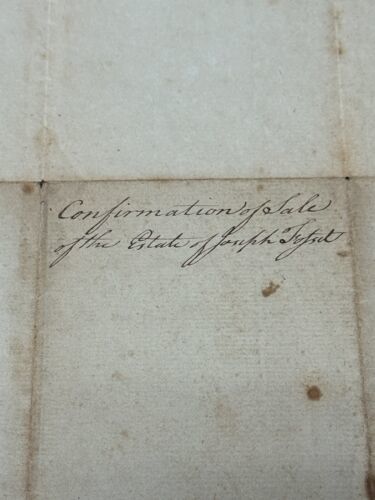 Confirmation of Sale
of the Estate of Joseph